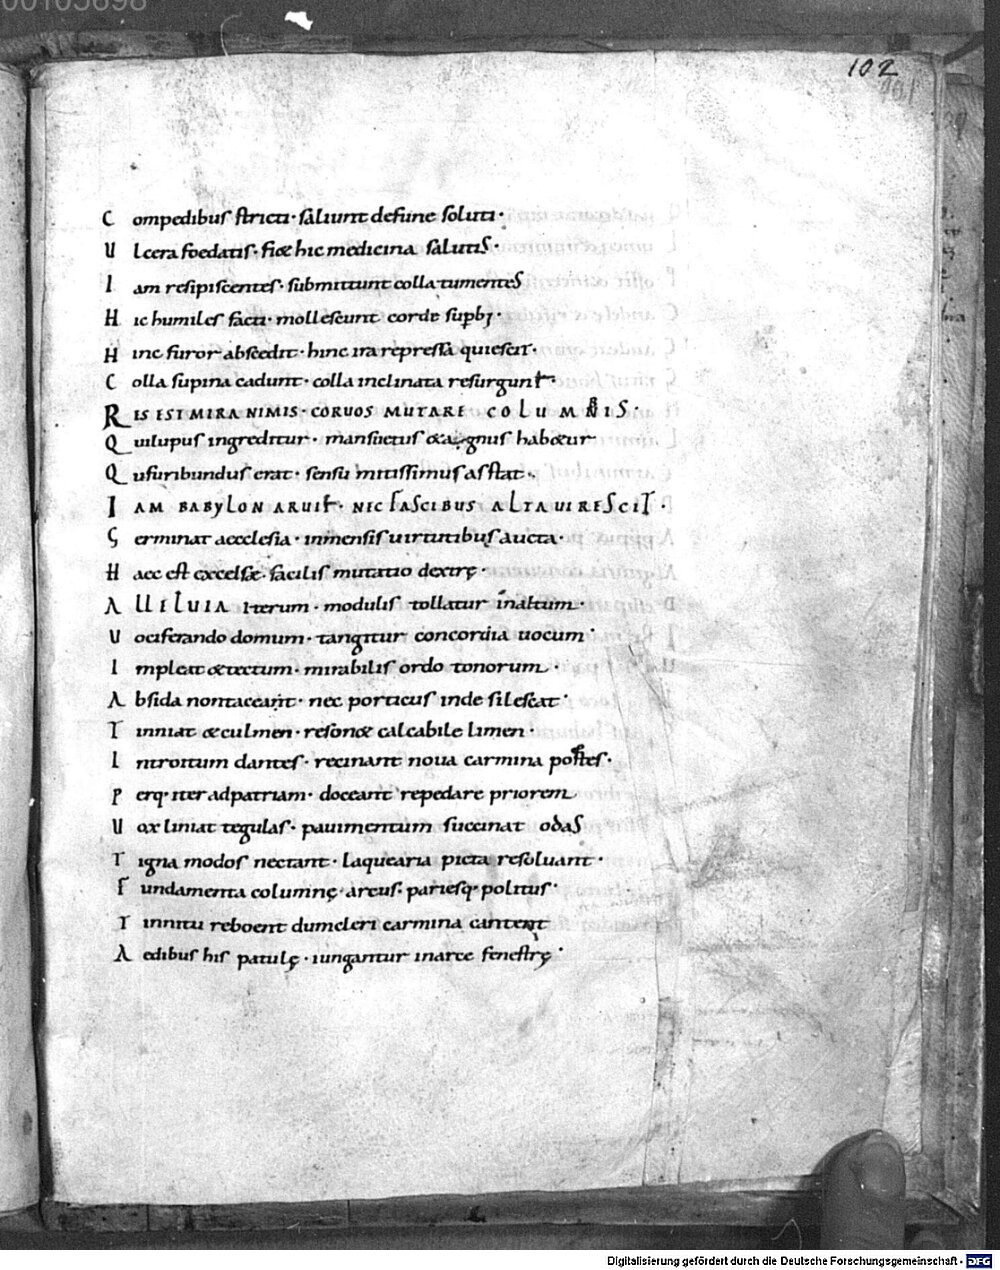 00105698
102
101
C ompedibus stricti · saliunt desine soluti ·
U lcera foedatis · fiæ hic medicina salutis ·
I am resipiscentes · submittunt colla tumentes
H ic humiles facti · mollescunt corde supbi ·
H inc furor abscedit · hinc ira repressa quiescit ·
C olla supina cadunt · colla inclinata resurgunt ·
R IS EST MIRA NIMIS · CORUOS MUTARE COLUMNIS ·
Q ui lupus ingreditur · mansuetus & agnus habætur
Q ui furibundus erat · sensu mitissimus asstat ·
I AM BABYLON ARUIT · NEC FASCIBUS ALTA UIRESCIT ·
G erminat aecclesia · inmensis uirtutibus aucta ·
H aec est excelsæ · facilis mutatio dextrę ·
A LLELUIA iterum · modulis tollatur inaltum ·
U ociferando domum · tangitur concordia uocum ·
I mpleat & tectum · mirabilis ordo tonorum ·
A bsida non taceant · nec porticus inde silescat ·
T inniat & culmen · resonæ calcabile limen ·
I ntroitum dantes · recinant noua carmina postes ·
P erq· iter ad patriam · doceant repedare priorem
U ox liniat tegulas · pauimentum succinat odas
T igna modos nectant · laquearia picta resoluant ·
F undamenta columnę · arcus · pariesq· politus ·
T innitu reboent dum cleri carmina cantent
A edibus his patulę · iungantur in arce fenestrę ·
Digitalisierung gefördert durch die Deutsche Forschungsgemeinschaft - DFG